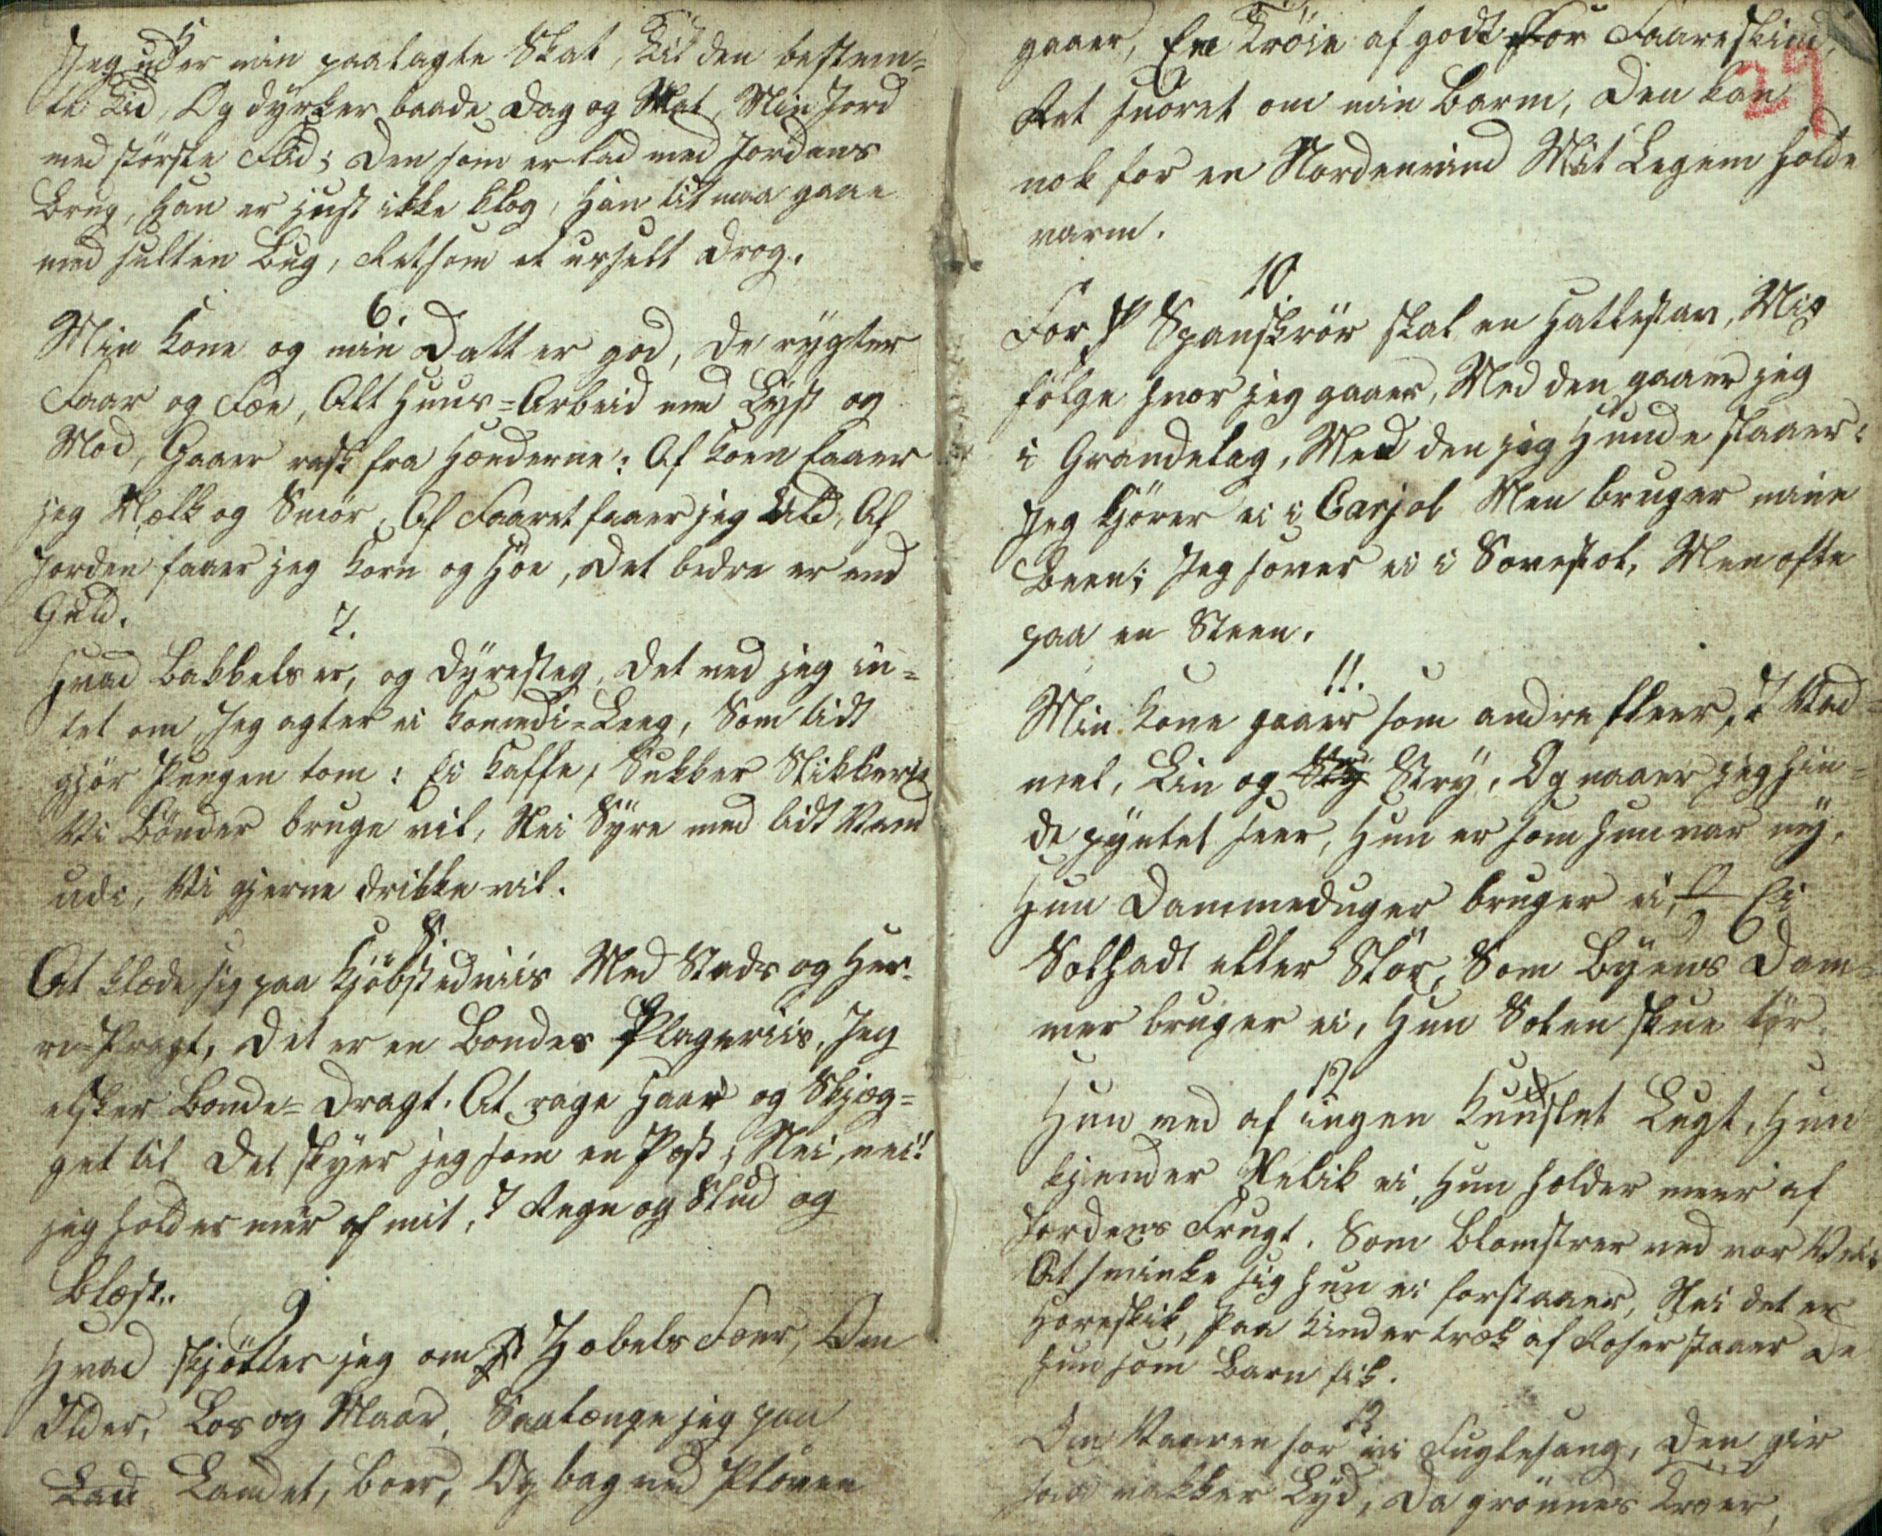 5
Jeg uder min paalagte Skat, Til den bestem-
te Tid, Og dÿrker baade Dag og Nat, Min Jord
med störste Flid; Den som er lad med Jordens
Brug, Han er just ikke klog, Han tit maa gaae
med sulten Bug, Retsom et usselt Drog.
6.
Min Kone og min Datter god, De rÿgter
Faar og Fæe, Alt Huus-Arbeid med Lÿst og
Mod, Gaaer rask fra Hænderne: Af Koen faaer
jeg Mælk og Smör, Af Faaret faaer jeg Uld, Af
Jorden faaer jeg Korn og Höe, Det bedre er end
Guld.
7.
Hvad Bakkels er, og Dÿresteg, Det ved jeg in-
tet om, Jeg agter ei Komedi-Leeg, Som tidt
gjör Pungen tom: Ei Kaffe, Sukker Slikkerie
Vi Bönder bruge vil, Nei Sÿre med lidt Vand
udi, Vi gjerne drikke vil.
8.
At klæde sig paa Kjöbstedviis Med Stads og Her-
re-Pragt, Det er en Bondes Plageriis, Jeg
elsker Bonde-Dragt. At rage Haar og Skjæg-
get til Det skÿer jeg som en Pest; Nei, nei!
jeg holder mér af mit, I Regn og Slud og
Blæst.
9
Hvad skjötter jeg om Zobels Foer, Om
Ilder, Los og Maar, Saalænge jeg paa
Landet, boer, Og bag ved Ploven
gaaer, En Tröie af godt For Faareskind,
Ret snöret om min Barm, Den kan
nok for en Nordenvind Mit Legem holde
varm.
29
10.
For Spanskrör skal en Hattestav, Mig
fölge hvor jeg gaaer, Med den gaaer jeg
i Grandelag, Med den jeg Hunde slaaer:
Jeg kjörer ei i Carjol Men bruger mine
Been; Jeg sover ei i Sovestol, Men ofte
paa en Steen.
11.
Min Kone gaaer som andre fleer, I Vad-
mel, Lin og Strÿ, Og naaer jeg hin-
de pÿntet seer, Hun er som hun var nÿ.
Hun Dammeduger bruger ei, Ei
Solhadt eller Slör, Som Bÿens Dam-
mer bruger ei, Hun Solen skue tör.
12
Hun ved af ingen Kunstet Lugt, Hun
kjender Nelik ei, Hun holder meer af
Jordens Frugt. Som blomstrer ved vor Vei:
At sminke sig hun ei forstaaer, Nei det er
Horeskik, Paa Kinder træk af Roser staaer De
hun som Barn fik.
13
Om Vaaren hör vi Fuglesang, Den gir
saa vakker Lÿd, Da grönnes